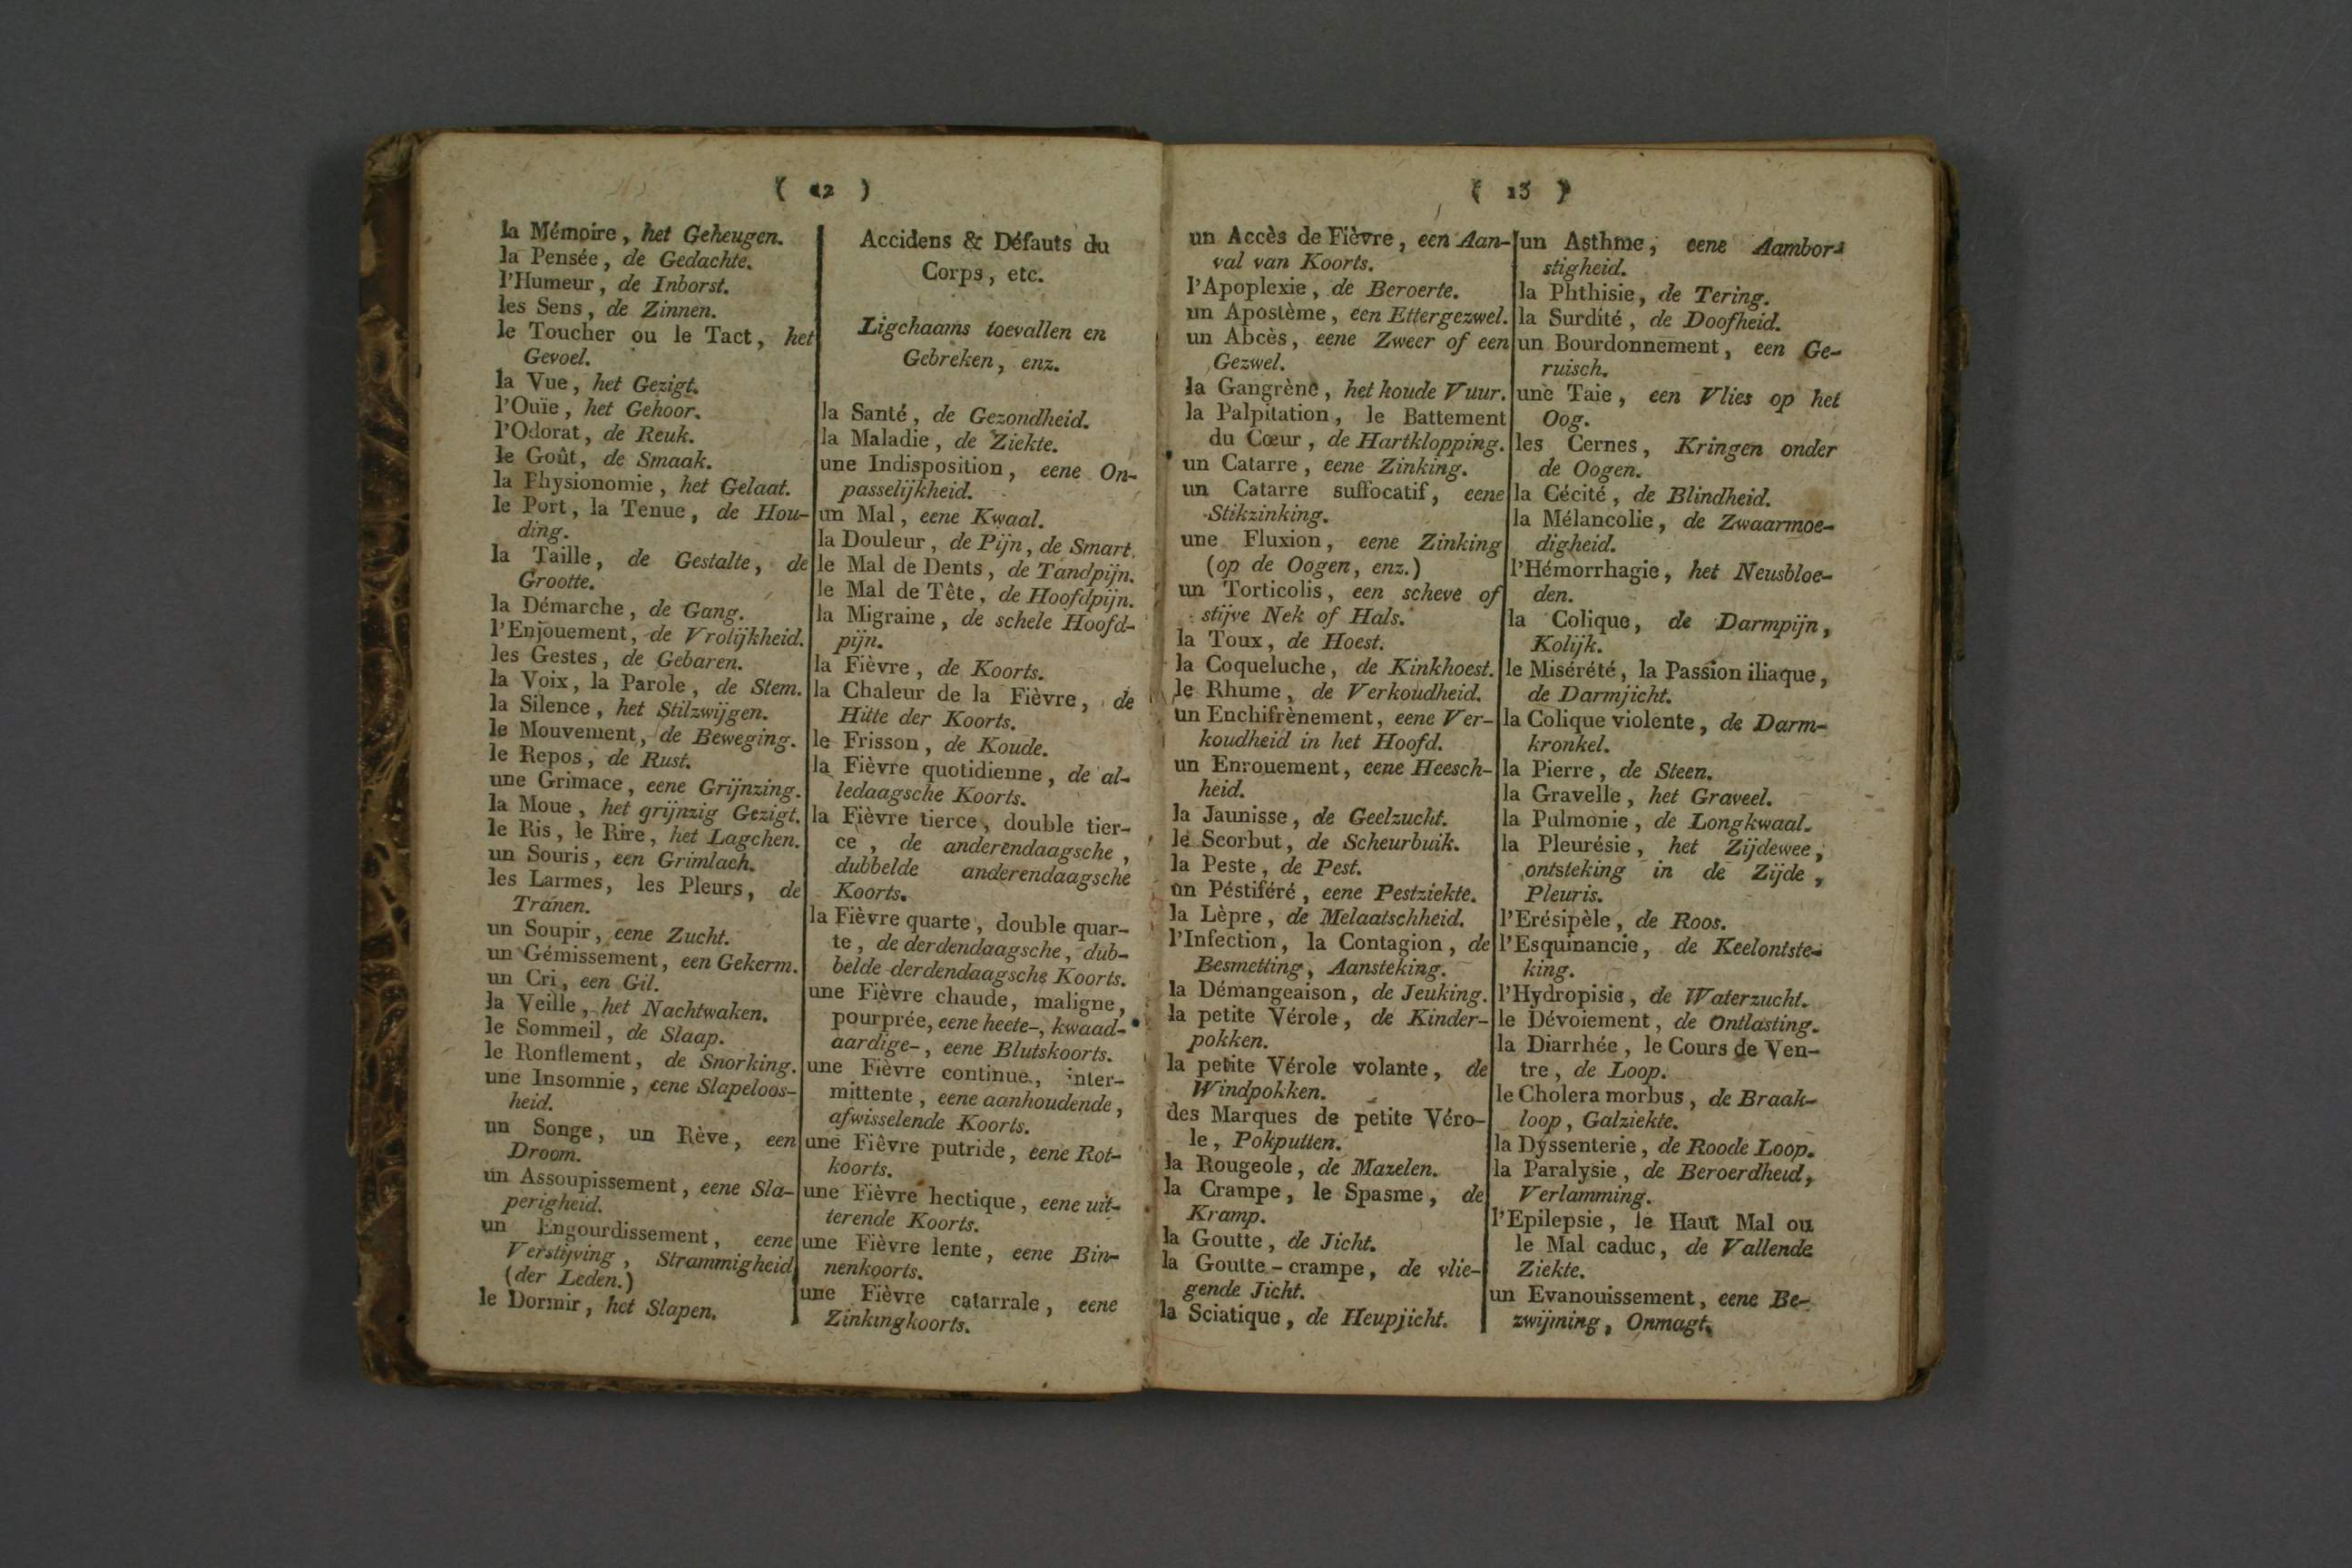 ( 12 )
la Mémoire, het Geheugen.
la Pensée, de Gedachte.
l'Humeur, de Inborst.
les Sens, de Zinnen.
le Toucher ou le Tact, het
Gevoel.
la Vue, het Gezigt.
l'Ouïe, het Gehoor.
l'Odorat, de Reuk.
le Goût, de Smaak.
la Physionomie, het Gelaat.
le Port, la Tenue, de Hou-
ding.
la Taille, de Gestalte, de
Grootte.
la Démarche, de Gang.
l'Enjouement, de Vrolijkheid.
les Gestes, de Gebaren.
la Voix, la Parole, de Stem.
la Silence, het Stilzwijgen.
le Mouvement, de Beweging.
le Repos, de Rust.
une Grimace, eene Grijnzing.
la Moue, het grijnzig Gezigt.
le Ris, le Rire, het Lagchen.
un Souris, een Grimlach.
les Larmes, les Pleurs, de
Tranen.
un Soupir, eene Zucht.
un Gémissement, een Gekerm.
un Cri, een Gil.
la Veille, het Nachtwaken.
le Sommeil, de Slaap.
le Ronflement, de Snorking.
une Insomnie, eene Slapeloos-
heid.
un Songe, un Rève, een
Droom.
un Assoupissement, eene Sla-
perigheid.
un Engourdissement, eene
Verstijving, Strammigheid
(der Leden.)
le Dormir, het Slapen.
Accidens & Défauts du
Corps, etc.
Ligchaams toevallen en
Gebreken, enz.
la Santé, de Gezondheid.
la Maladie, de Ziekte.
une Indisposition, eene On-
passelijkheid.
un Mal, eene Kwaal.
la Douleur, de Pijn, de Smart.
le Mal de Dents, de Tandpijn.
le Mal de Tête, de Hoofdpijn.
la Migraine, de schele Hoofd-
pijn.
la Fièvre, de Koorts.
la Chaleur de la Fièvre, de
Hitte der Koorts.
le Frisson, de Koude.
la Fièvre quotidienne, de al-
ledaagsche Koorts.
la Fièvre tierce, double tier-
ce, de anderendaagsche,
dubbelde anderendaagsche
Koorts.
la Fièvre quarte, double quar-
te, de derdendaagsche, dub-
belde derdendaagsche Koorts.
une Fièvre chaude, maligne,
pourprée, eene heete-, kwaad-
aardige-, eene Blutskoorts.
une Fièvre continue, inter-
mittente, eene aanhoudende,
afwisselende Koorts.
une Fièvre putride, eene Rot-
koorts.
une Fièvre hectique, eene uit-
terende Koorts.
une Fièvre lente, eene Bin-
nenkoorts.
une Fièvre catarrale, eene
Zinkingkoorts.
( 13 )
un Accès de Fièvre, een Aan-
val van Koorts.
l'Apoplexie, de Beroerte.
un Apostème, een Ettergezwel.
un Abcès, eene Zweer of een
Gezwel.
la Gangrène, het koude Vuur.
la Palpitation, le Battement
du Cœur, de Hartklopping.
un Catarre, eene Zinking.
un Catarre suffocatif, eene
Stikzinking.
une Fluxion, eene Zinking
(op de Oogen, enz.)
un Torticolis, een scheve of
stijve Nek of Hals.
la Toux, de Hoest.
la Coqueluche, de Kinkhoest.
le Rhume, de Verkoudheid.
un Enchifrènement, eene Ver-
koudheid in het Hoofd.
un Enrouement, eene Heesch-
heid.
la Jaunisse, de Geelzucht.
le Scorbut, de Scheurbuik.
la Peste, de Pest.
un Péstiféré, eene Pestziekte.
la Lèpre, de Melaatschheid.
l'Infection, la Contagion, de
Besmetting, Aansteking.
la Démangeaison, de Jeuking.
la petite Vérole, de Kinder-
pokken.
la petite Vérole volante, de
Windpokken.
des Marques de petite Véro-
le, Pokputten.
la Rougeole, de Mazelen.
la Crampe, le Spasme, de
Kramp.
la Goutte, de Jicht.
la Goutte-crampe, de vlie-
gende Jicht.
la Sciatique, de Heupjicht.
un Asthme, eene Aambor-
stigheid.
la Phthisie, de Tering.
la Surdité, de Doofheid.
un Bourdonnement, een Ge-
ruisch.
une Taie, een Vlies op het
Oog.
les Cernes, Kringen onder
de Oogen.
la Cécité, de Blindheid.
la Mélancolie, de Zwaarmoe-
digheid.
l'Hémorrhagie, het Neusbloe-
den.
la Colique, de Darmpijn,
Kolijk.
le Misérété, la Passion iliaque,
de Darmjicht.
la Colique violente, de Darm-
kronkel.
la Pierre, de Steen.
la Gravelle, het Graveel.
la Pulmonie, de Longkwaal.
la Pleurésie, het Zijdewee,
ontsteking in de Zijde,
Pleuris.
l'Erésipèle, de Roos.
l'Esquinancie, de Keelontste-
king.
l'Hydropisie, de Waterzucht.
le Dévoiement, de Ontlasting.
la Diarrhée, le Cours de Ven-
tre, de Loop.
le Cholera morbus, de Braak-
loop, Galziekte.
la Dyssenterie, de Roode Loop.
la Paralysie, de Beroerdheid,
Verlamming.
l'Epilepsie, le Haut Mal ou
le Mal caduc, de Vallende
Ziekte.
un Evanouissement, eene Be-
zwijming, Onmagt.